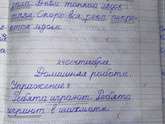 дома. Вной тонкий ледок.
Скоро вся река покро-
ется льдом.
24 октября.
Домашняя работа.
Упражнение
Ребята играют. Ребята
играют в шахматы.